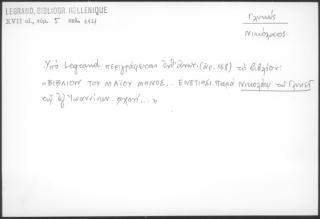 LEGRAND, BIBLIOGR. HELLENIQUE
XVII αἰ, τόμ. 5 σελ. 121
Γλυκύς
Νικόλαος
Ὑπὸ Legrand περιγράφεται (ἀρ. 168) τὸ βιβλίον:
«ΒΙΒΛΙΟΝ ΤΟΥ ΜΑΪΟΥ ΜΗΝΟΣ... ΕΝΕΤΙΗΣΙ. Παρὰ Νικολάῳ τῷ Γλυκεῖ
τῷ ἐξ Ἰωαννίνων. αχπη'...»